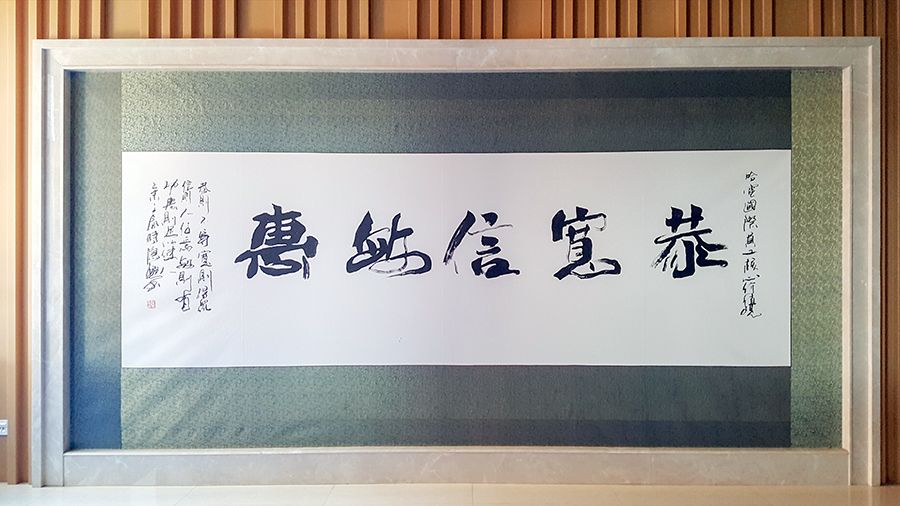 哈電國際員工核心
恭寬信敏惠
恭則不侮寬則得眾
信則人任焉敏則有
功惠則足以使人